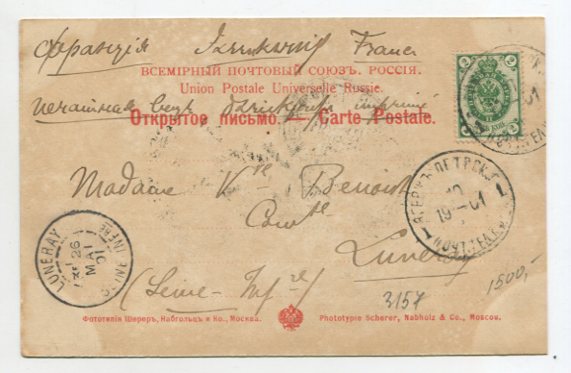 Франція France
ВСЕМІРНЫЙ ПОЧТОВЫЙ СОЮЗЪ. РОССІЯ.
Union Postale Universelle Russie.
печатная imprimé
Открытое письмо. — Carte Postale.
Madame Vve Benoist
Luneray
(Seine-Infre)
LUNERAY
26
MAI
01
SEINE INFRE
19 01
3157
1500,-
Фототипія Шереръ, Набгольцъ и Ко., Москва.
Phototypie Scherer, Nabholz & Co., Moscou.